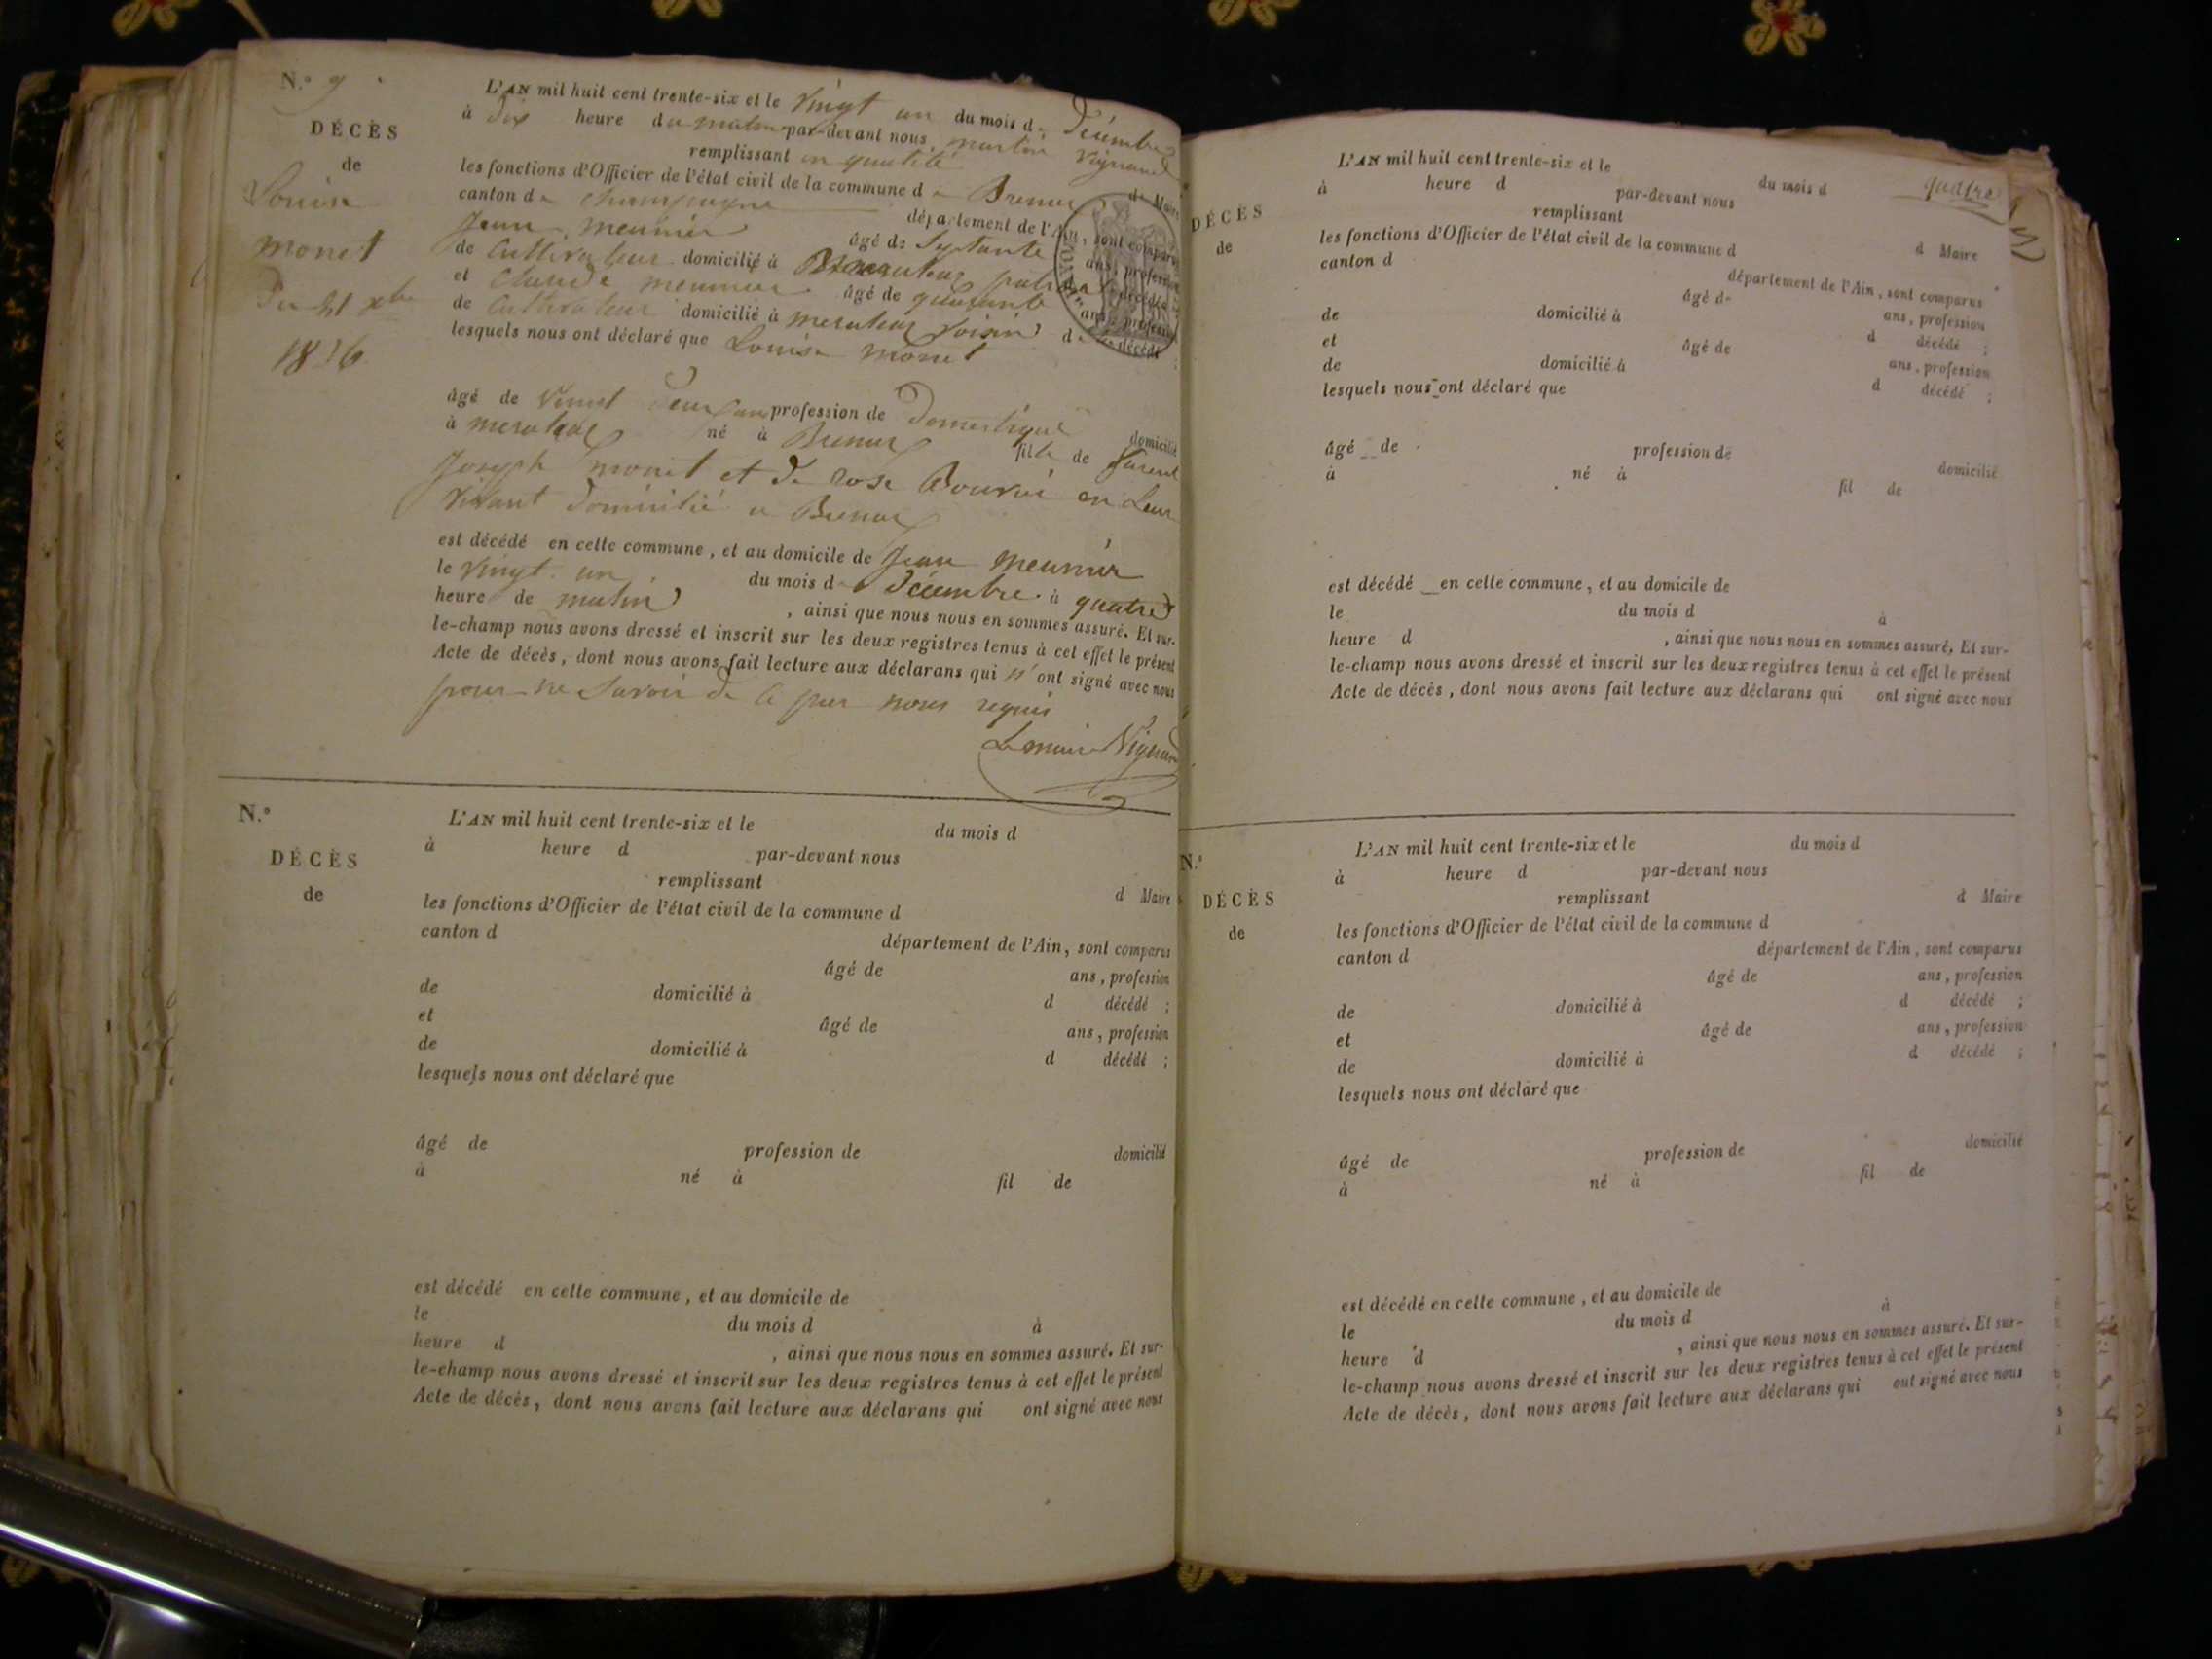 N.° 9
DÉCÈS
de
Louise
monet
Du 21 xbre
1836
L'AN mil huit cent trente-six et le vingt un du mois de Décembre
à dix heure du matin par-devant nous, martin Vignand
remplissant en qualité de Maire
les fonctions d'Officier de l'état civil de la commune de Brenas
canton de Champagne département de l'Ain, sont comparus
Jean meunier âgé de Septante ans, profession
de Cultivateur domicilié à décédé
et Claude meunier âgé de quarante ans, profession
de Cultivateur domicilié à voisin de décédé
lesquels nous ont déclaré que Louise monet
âgé de Vingt Deux ans profession de Domestique domicilié
à né à Brenas fille de
Joseph monet et de rose en Leur
vivant Domicilié a Brenas
est décédé en cette commune, et au domicile de Jean Meunier
le vingt un du mois de Décembre à quatre
heure de matin, ainsi que nous nous en sommes assuré. Et sur-
le-champ nous avons dressé et inscrit sur les deux registres tenus à cet effet le présent
Acte de décès, dont nous avons fait lecture aux déclarans qui n'ont signé avec nous
pour ne Savoir de Ce par nous requis
Le maire Vignand
N.°
DÉCÈS
de
L'AN mil huit cent trente-six et le du mois d
à heure d par-devant nous
remplissant d Maire
les fonctions d'Officier de l'état civil de la commune d
canton d département de l'Ain, sont comparus
âgé de ans, profession
de domicilié à d décédé ;
et âgé de ans, profession
de domicilié à d décédé ;
lesquels nous ont déclaré que
âgé de profession de domicilié
à né à fil de
est décédé en cette commune, et au domicile de
le du mois d à
heure d , ainsi que nous nous en sommes assuré. Et sur-
le-champ nous avons dressé et inscrit sur les deux registres tenus à cet effet le présent
Acte de décès, dont nous avons fait lecture aux déclarans qui ont signé avec nous
quatre
DÉCÈS
de
L'AN mil huit cent trente-six et le du mois d
à heure d par-devant nous
remplissant d Maire
les fonctions d'Officier de l'état civil de la commune d
canton d département de l'Ain, sont comparus
âgé de ans, profession
de domicilié à d décédé ;
et âgé de ans, profession
de domicilié à d décédé ;
lesquels nous ont déclaré que
âgé de profession de domicilié
à né à fil de
est décédé en cette commune, et au domicile de
le du mois d à
heure d , ainsi que nous nous en sommes assuré, Et sur-
le-champ nous avons dressé et inscrit sur les deux registres tenus à cet effet le présent
Acte de décès, dont nous avons fait lecture aux déclarans qui ont signé avec nous
N.°
DÉCÈS
de
L'AN mil huit cent trente-six et le du mois d
à heure d par-devant nous
remplissant d Maire
les fonctions d'Officier de l'état civil de la commune d
canton d département de l'Ain, sont comparus
âgé de ans, profession
de domicilié à d décédé ;
et âgé de ans, profession
de domicilié à d décédé ;
lesquels nous ont déclaré que
âgé de profession de domicilié
à né à fil de
est décédé en cette commune, et au domicile de
le du mois d à
heure d , ainsi que nous nous en sommes assuré. Et sur-
le-champ nous avons dressé et inscrit sur les deux registres tenus à cet effet le présent
Acte de décès, dont nous avons fait lecture aux déclarans qui ont signé avec nous